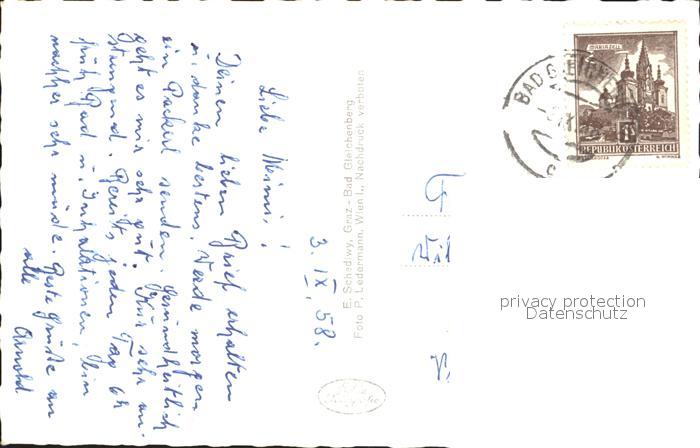 3. IX. 58.
Liebe Meimi!
Deinen lieben Brief erhalten
u. danke bestens. Werde morgen
ein Packerl senden. Gesundheitlich
geht es mir sehr gut. Kur sehr an-
strengend. Bereits jeden Tag 6h
früh Bad u. Inhalationen, bin
nachher sehr müde. Beste Grüße an
alle Arnold
E. Schediwy, Graz - Bad Gleichenberg
Foto P. Ledermann, Wien I., Nachdruck verboten
F
Wil
BAD GLEICHE
MARIAZELL
1S
REPUBLIK ÖSTERREICH
privacy protection
Datenschutz